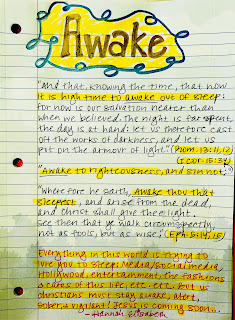 Awake
"And that, knowing the time, that now
it is high time to awake out of sleep:
for now is our salvation nearer than
when we believed. The night is far spent,
the day is at hand: let us therefore cast
off the works of darkness, and let us
put on the armour of light." (Rom. 13:11,12)
(1 Cor. 15:34)
"Awake to righteousness, and sin not."
"Wherefore he saith, Awake thou that
sleepest, and arise from the dead,
and Christ shall give thee light.
See then that ye walk circumspectly,
not as fools, but as wise." (Eph. 5:14,15)
Everything in this world is trying to
lure you to sleep. Media/social media,
Hollywood, entertainment, the fashions
& cares of this life, etc. etc., but us
christians must stay awake, alert,
sober, & vigilant! Jesus is coming SOON.
-Hannah Elizabeth